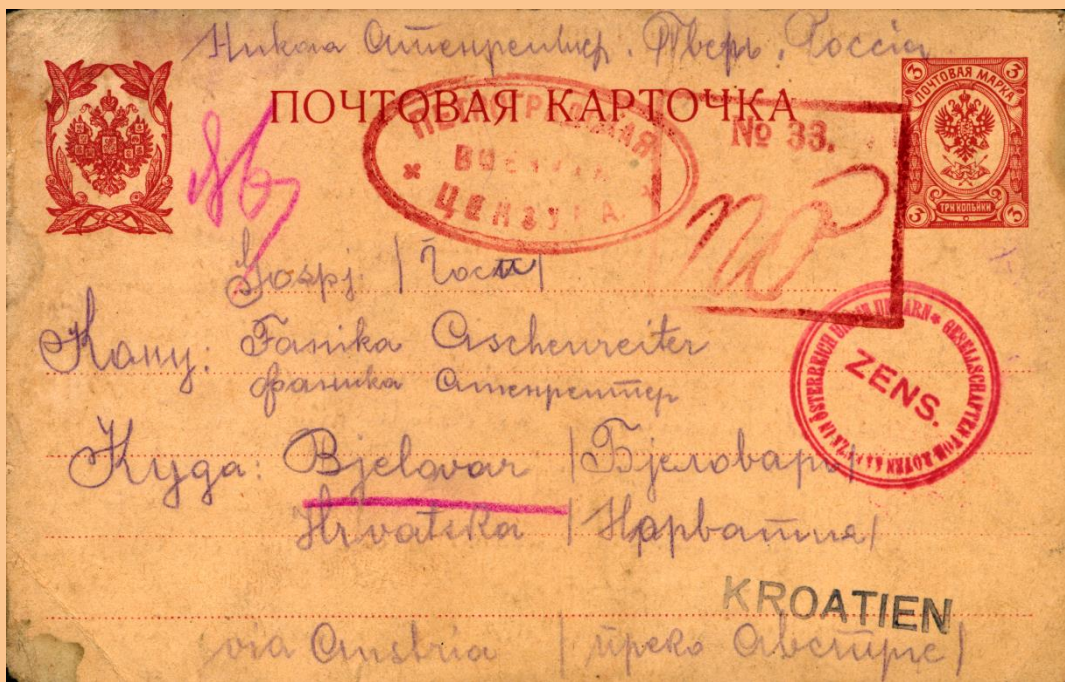 Никола Ашенрейтер. Тверь. Россія
ПОЧТОВАЯ КАРТОЧКА
ПОЧТОВАЯ МАРКА
3 3
ТРИ КОПѢЙКИ
3 3
ПЕТРОГРАДСКАЯ
ВОЕННАЯ
ЦЕНЗУРА
№ 33.
Gospj. /Госп/
Кому: Fanika Aschenreiter
Фаника Ашенрейтер
Куда: Bjelovar /Бјеловаръ/
Hrvatska /Нарватия/
GESELLSCHAFTEN VOM ROTEN KREUZE IN ÖSTERREICH UND IN UNGARN
ZENS.
KROATIEN
via Austria /преко Австрие/